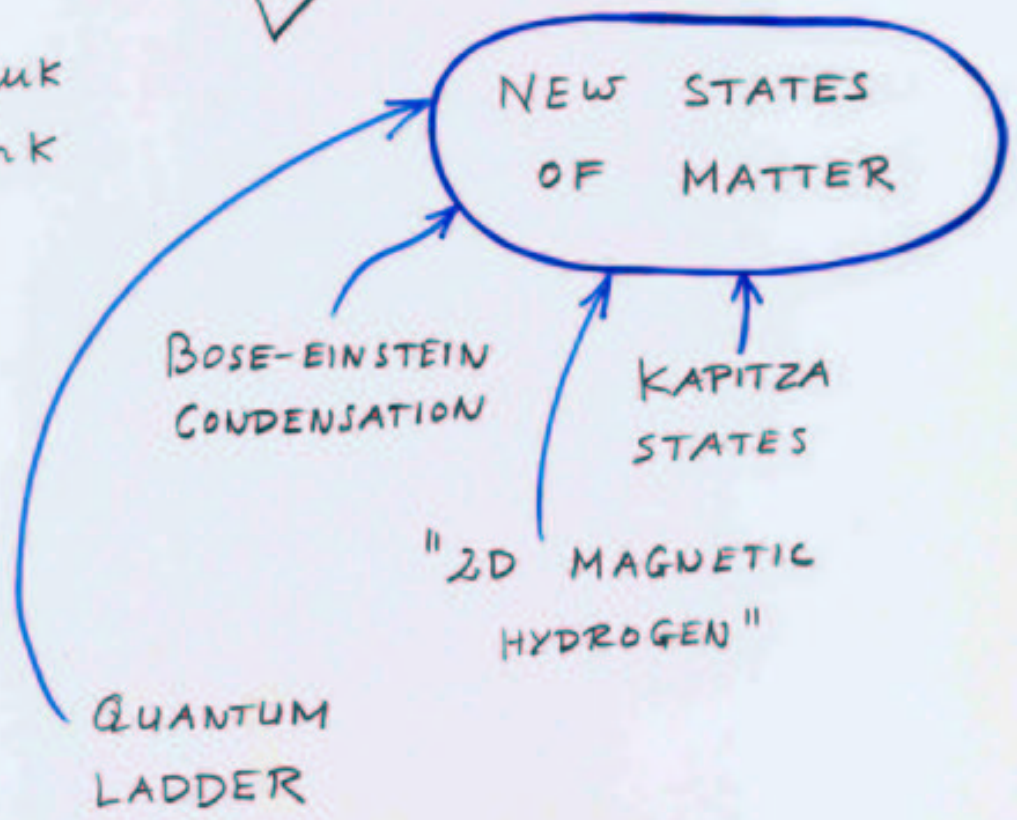 NEW STATES
OF MATTER
BOSE-EINSTEIN
CONDENSATION
KAPITZA
STATES
"2D MAGNETIC
HYDROGEN"
QUANTUM
LADDER